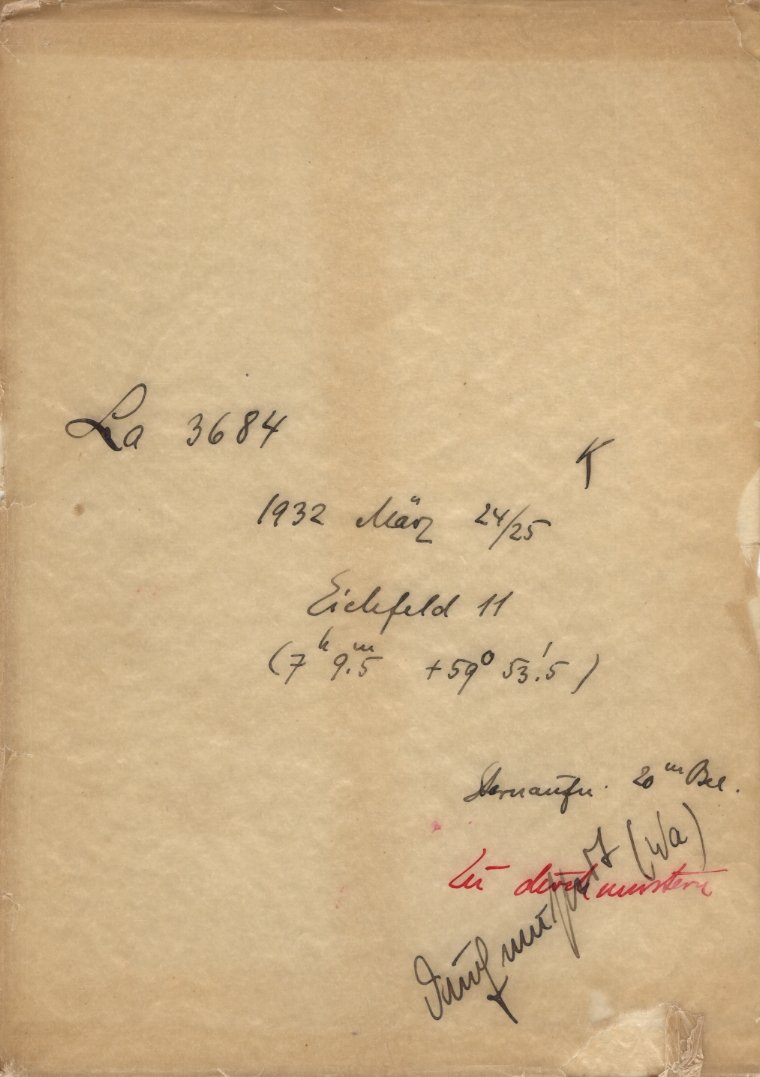 La 3684
K
1932 März 24/25
Eichfeld 11
(7ʰ 9.ᵐ5 +59° 53.'5)
Sternaufn. 20ᵐ Bel.
Zu durchmustern
durchmustert (Wa)